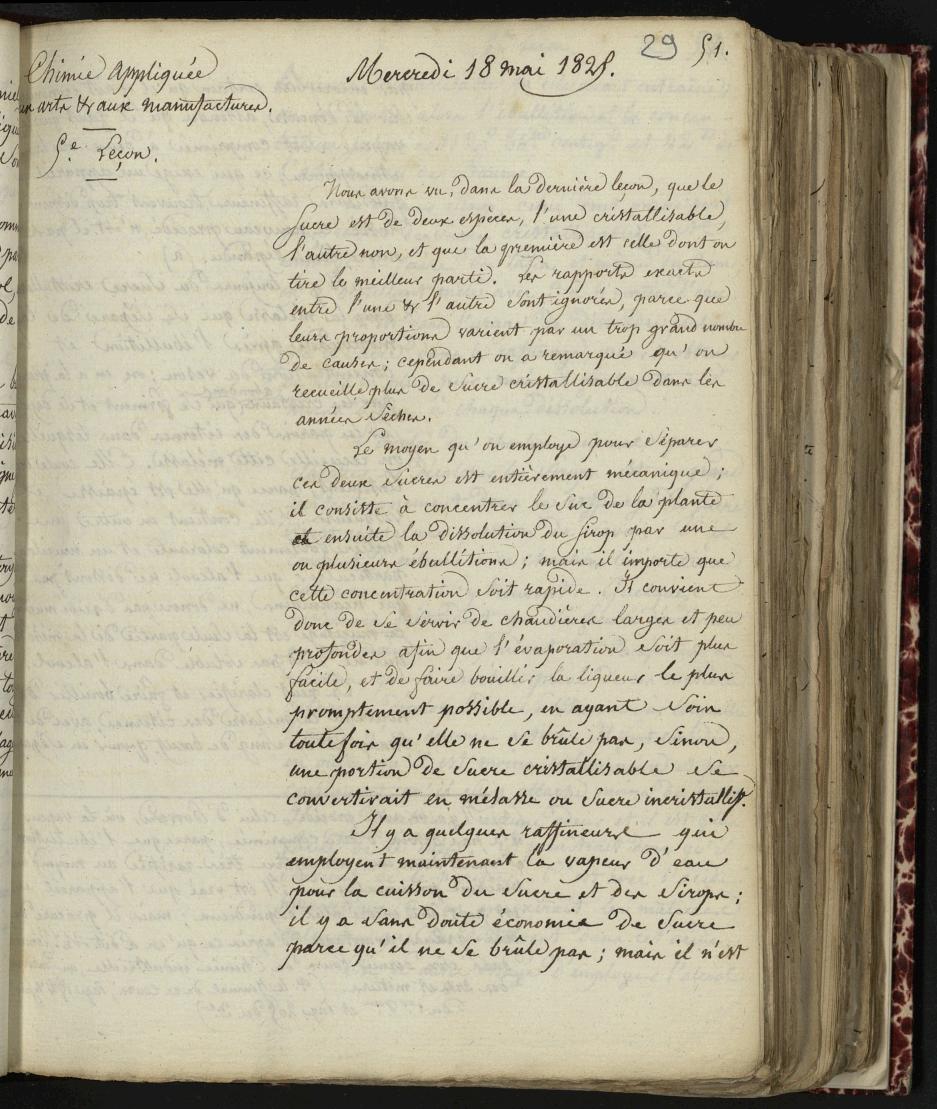 29 51.
Chimie appliquée
aux arts & aux manufactures.
Mercredi 18 mai 1825.
5.e Leçon.
Nous avons vu, dans la dernière leçon, que le
sucre est de deux espèces, l'une cristallisable,
l'autre non, et que la première est celle dont on
tire le meilleur parti. Les rapports exacts
entre l'une & l'autre sont ignorés, parce que
leurs proportions varient par un trop grand nombre
de causes; cependant on a remarqué qu'on
recueille plus de sucre cristallisable dans les
années sèches.
Le moyen qu'on employe pour séparer
ces deux sucres est entièrement mécanique;
il consiste à concentrer le suc de la plante
et ensuite la dissolution du sirop par une
ou plusieurs ébullitions; mais il importe que
cette concentration soit rapide. Il convient
donc de se servir de chaudières larges et peu
profondes afin que l'évaporation soit plus
facile, et de faire bouillir la liqueur le plus
promptement possible, en ayant soin
toutefois qu'elle ne se brûle pas, sinon,
une portion de sucre cristallisable se
convertirait en mélasse ou sucre incristallis.
Il y a quelques raffineurs qui
employent maintenant la vapeur d'eau
pour la cuisson du sucre et des sirops;
il y a sans doute économie de sucre
parce qu'il ne se brûle pas; mais il n'est